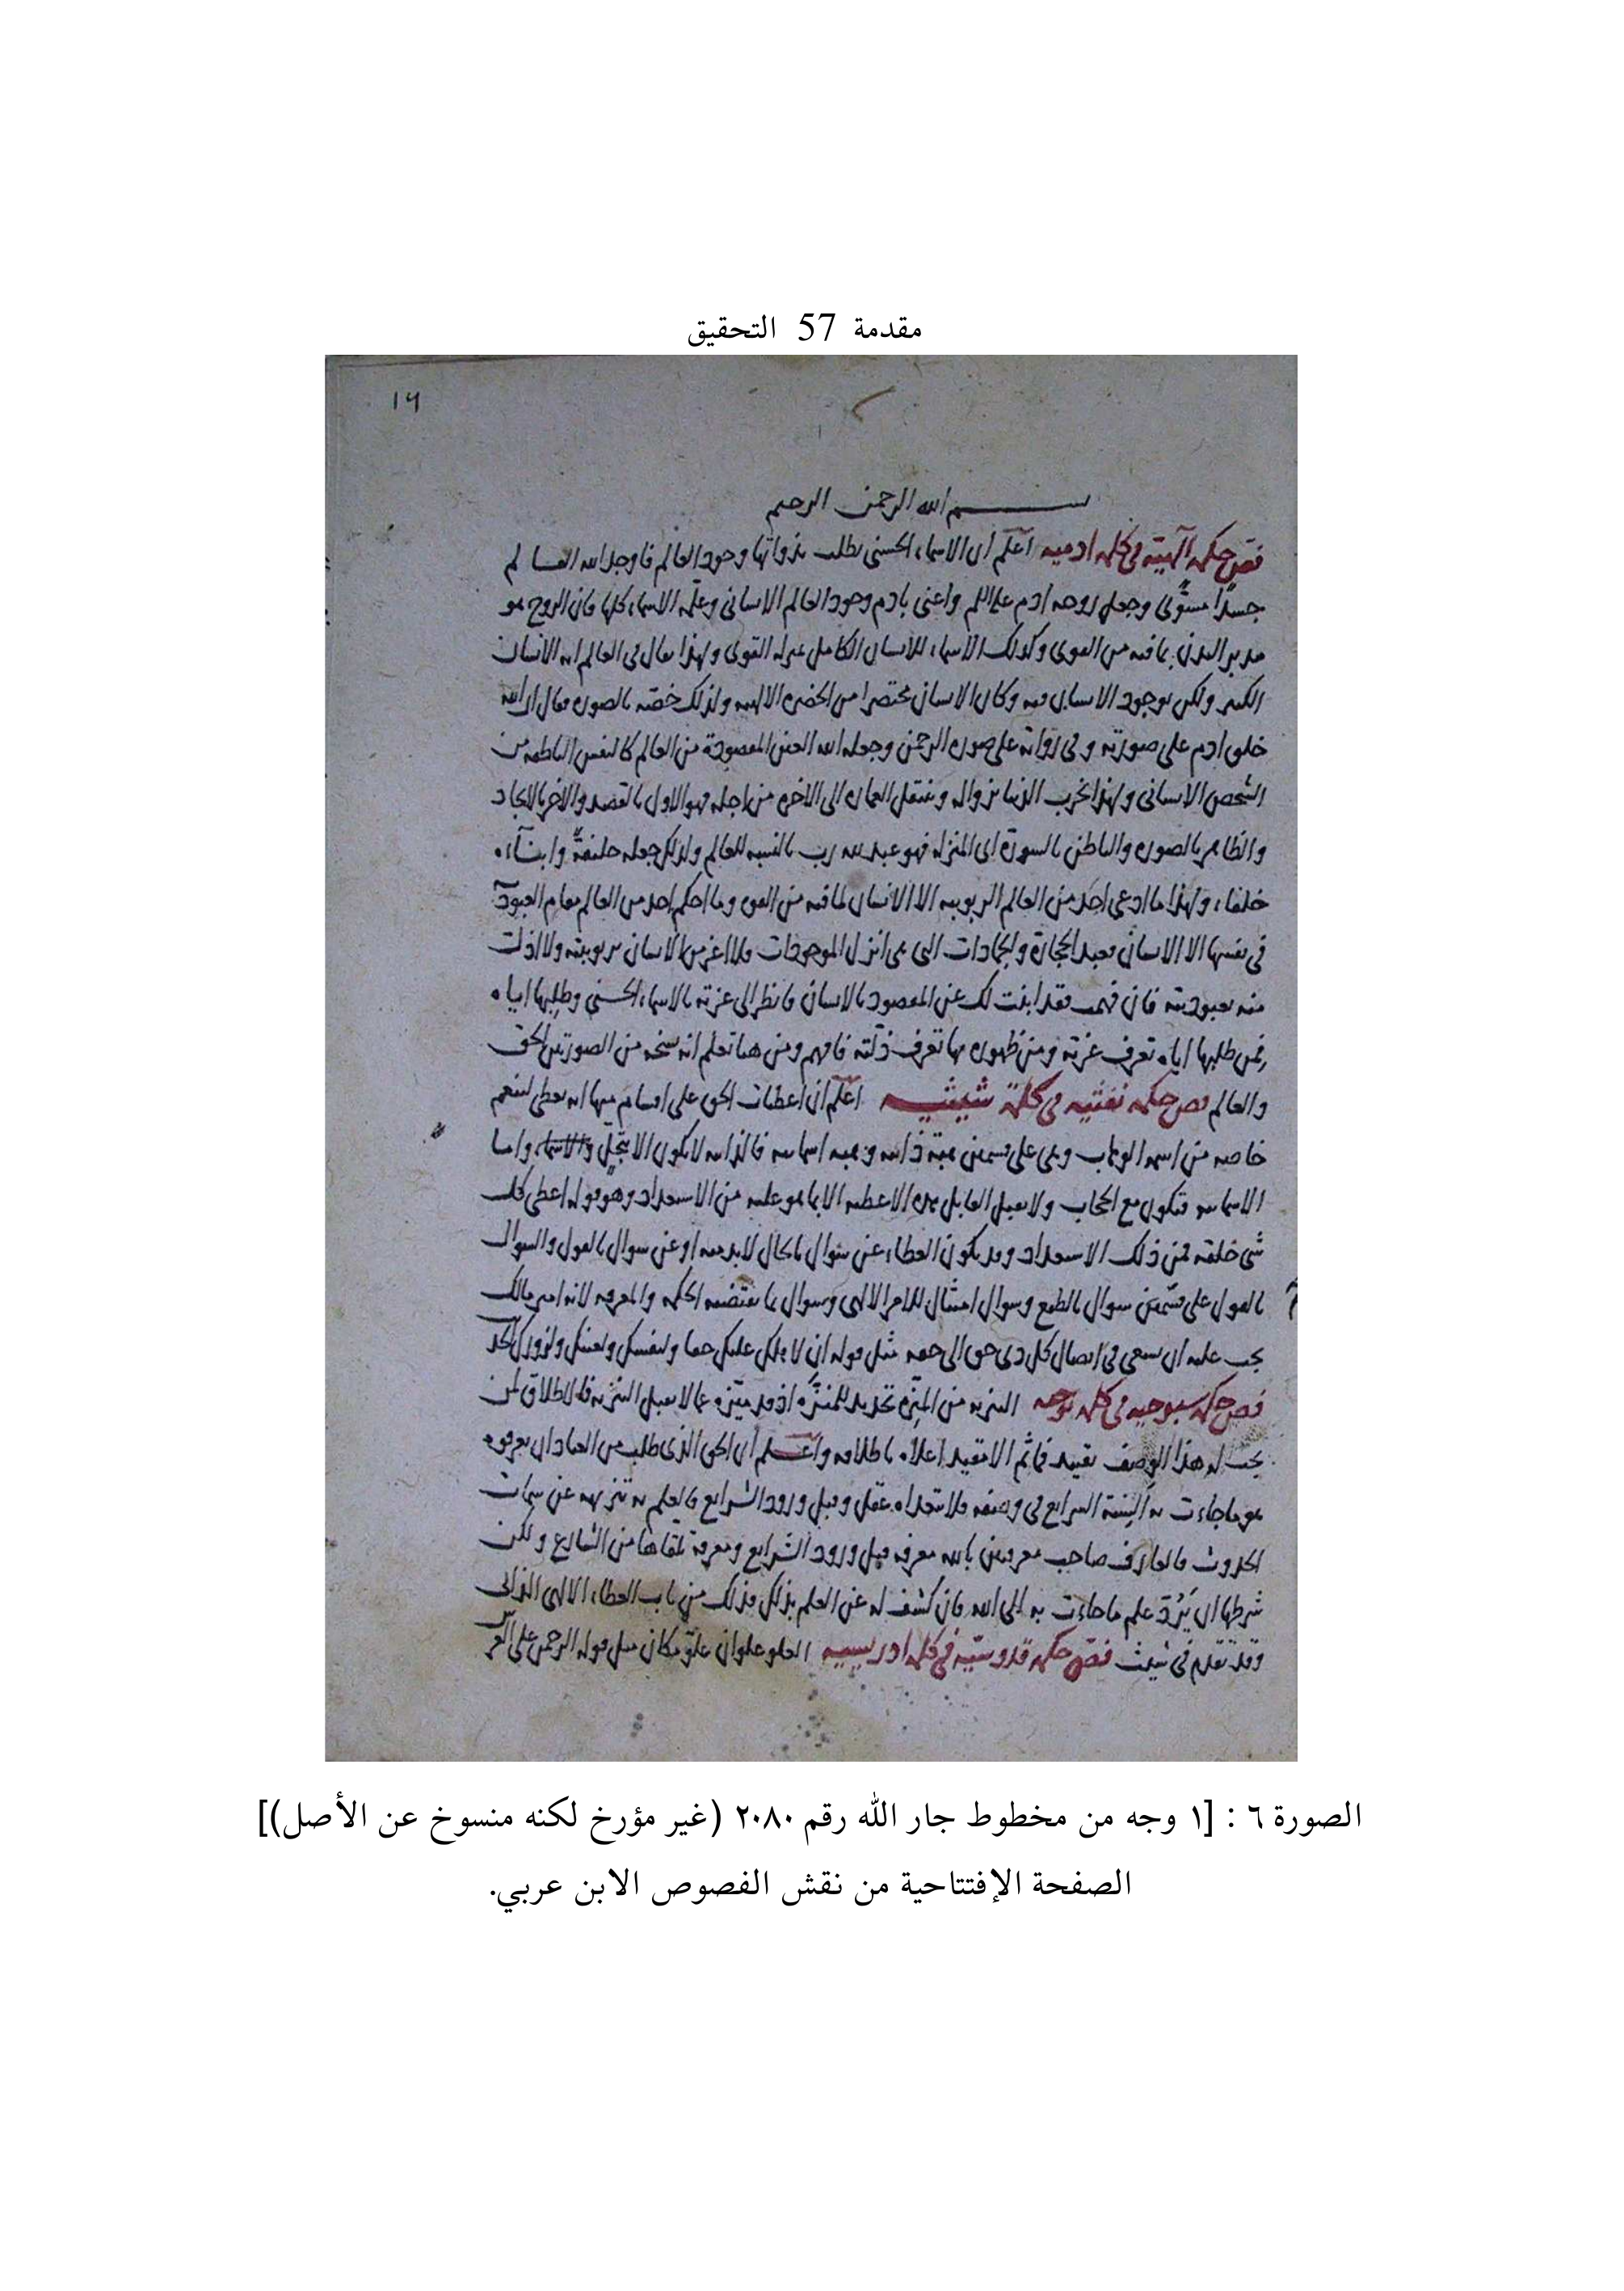 مقدمة 57 التحقيق
١٦
بسم الله الرحمن الرحيم
فص حكمة الهية في كلمة ادمية اعلم أن الاسماء الحسنى تطلب بذواتها وجود العالم فاوجد الله العالم
جسدًا مسوّى وجعل روحه ادم عليه السلم واعنى بادم وجود العالم الانسانى وعلّمه الاسماء كلها فان الروح هو
مدبر البدن بما فيه من القوى وكذلك الأسماء للانسان الكامل بمنزلة القوى ولهذا يقال في العالم انه الانسان
الكبير ولكن بوجود الانسان فيه وكان الانسان مختصرا من الحضرة الالهية ولذلك خصّه بالصورة فقال ان الله
خلق ادم على صورته وفى رواية على صورة الرحمن وجعله الله العين المقصودة من العالم كالنفس الناطقة من
الشخص الانسانى ولهذا تخرب الدنيا بزواله وتنتقل العمارة الى الاخرة من اجله فهو الاول بالقصد والآخر بالايجاد
والظاهر بالصورة والباطن بالسورة اى المنزلة فهو عبد لله رب بالنسبة للعالم ولذلك جعله خليفةً وابناءه
خلفاء ولهذا ما ادعى احد من العالم الربوبية الا الانسان لما فيه من القوة وما احكم احد من العالم مقام العبودة
فى نفسها الا الانسان فعبد الحجارة والجمادات التى هى انزل الموجودات فلا اعز من الانسان بربوبيته ولا اذل
منه بعبوديته فان فهمت فقد ابنت لك عن المقصود بالانسان فانظر الى عزته بالاسماء الحسنى وطلبها اياه
فمن طلبها اياه تعرف عزته ومن ظهوره بها تعرف ذلّته فافهم ومن هنا تعلم انه نسخة من الصورتين الحق
والعالم فص حكمة نفثية في كلمة شيثية اعلم أن اعطيات الحق على اقسام منها انه يعطى لينعم
خاصة من اسمه الوهاب وهى على قسمين هبة ذاتية وهبة اسمائية فالذاتية لا تكون الا بتجلّ واما
الاسمائية فتكون مع الحجاب ولا يقبل القابل هذه الاعطية الا بما هو عليه من الاستعداد وهو قوله اعطى كل
شى خلقه فمن ذلك الاستعداد وقد يكون العطاء عن سؤال بالحال لا بد منه او عن سوال بالقول والسوال
بالقول على قسمين سوال بالطبع وسوال امتثال للامر الالهى وسوال بما تقتضيه الحكمة والمعرفة لانه امير مالك
يجب عليه ان يسعى فى ايصال كل ذى حق الى حقه مثل قوله ان لاهلك عليك حقا ولنفسك ولعينك ولزورك الحديث
فص حكمة سبوحية في كلمة نوحية التنزيه من المنزّه تحديد للمنزَّه اذ قد ميّزه عما لا يقبل التنزيه فالاطلاق لمن
يجب له هذا الوصف تقييد فما ثم الا مقيد اعلاه باطلاقه واعلم أن الحق الذى طلب من العباد ان يعرفوه
هو ما جاءت به ألسنة الشرايع فى وصفه فلا يتعداه عقل وقبل ورود الشرايع فالعلم به تنزيهه عن سمات
الحدوث فالعارف صاحب معرفتين بالله معرفة قبل ورود الشرايع ومعرفة تلقاها من الشارع ولكن
شرطها ان يَرُدّ علم ما جاءت به الى الله فان كشف له عن العلم بذلك فذلك من باب العطاء الالهى الذاتى
وقد تقدم فى شيث فص حكمة قدوسيّة في كلمة ادريسية العلو علوان علوّ مكان مثل قوله الرحمن على العرش
الصورة ٦ : [١ وجه من مخطوط جار الله رقم ٢٠٨٠ (غير مؤرخ لكنه منسوخ عن الأصل)]
الصفحة الإفتتاحية من نقش الفصوص الابن عربي.